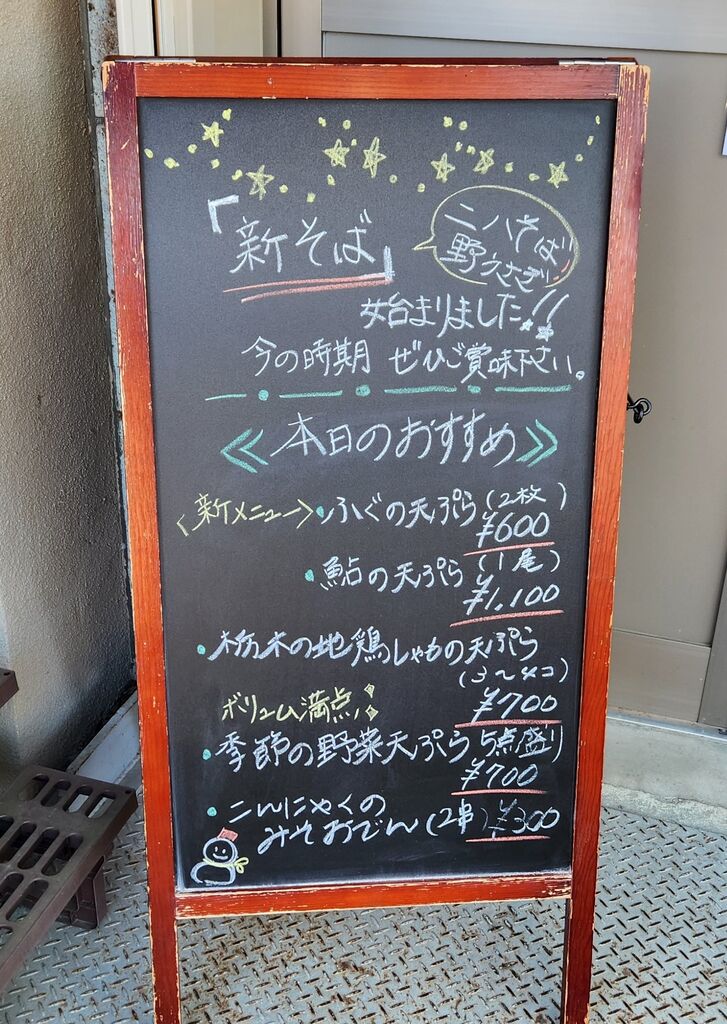 「新そば」
二八そば
始まりました!!
今の時期 ぜひご賞味下さい。
≪本日のおすすめ≫
<新メニュー>・ふぐの天ぷら(2枚)
¥600
・鮎の天ぷら(1尾)
¥1,100
・栃木の地鶏しゃもの天ぷら
(3〜4コ)
ボリューム満点! ¥700
・季節の野菜天ぷら5点盛り
¥700
・こんにゃくの
みそおでん(2串)¥300